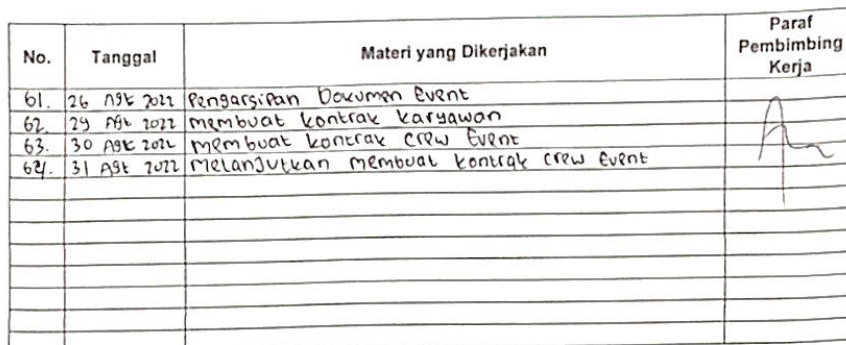 No. Tanggal Materi yang Dikerjakan Paraf Pembimbing Kerja
61. 26 Agt 2022 Pengarsipan Dokumen Event
62. 29 Agt 2022 membuat kontrak karyawan
63. 30 Agt 2022 membuat kontrak crew Event
64. 31 Agt 2022 Melanjutkan membuat kontrak crew Event